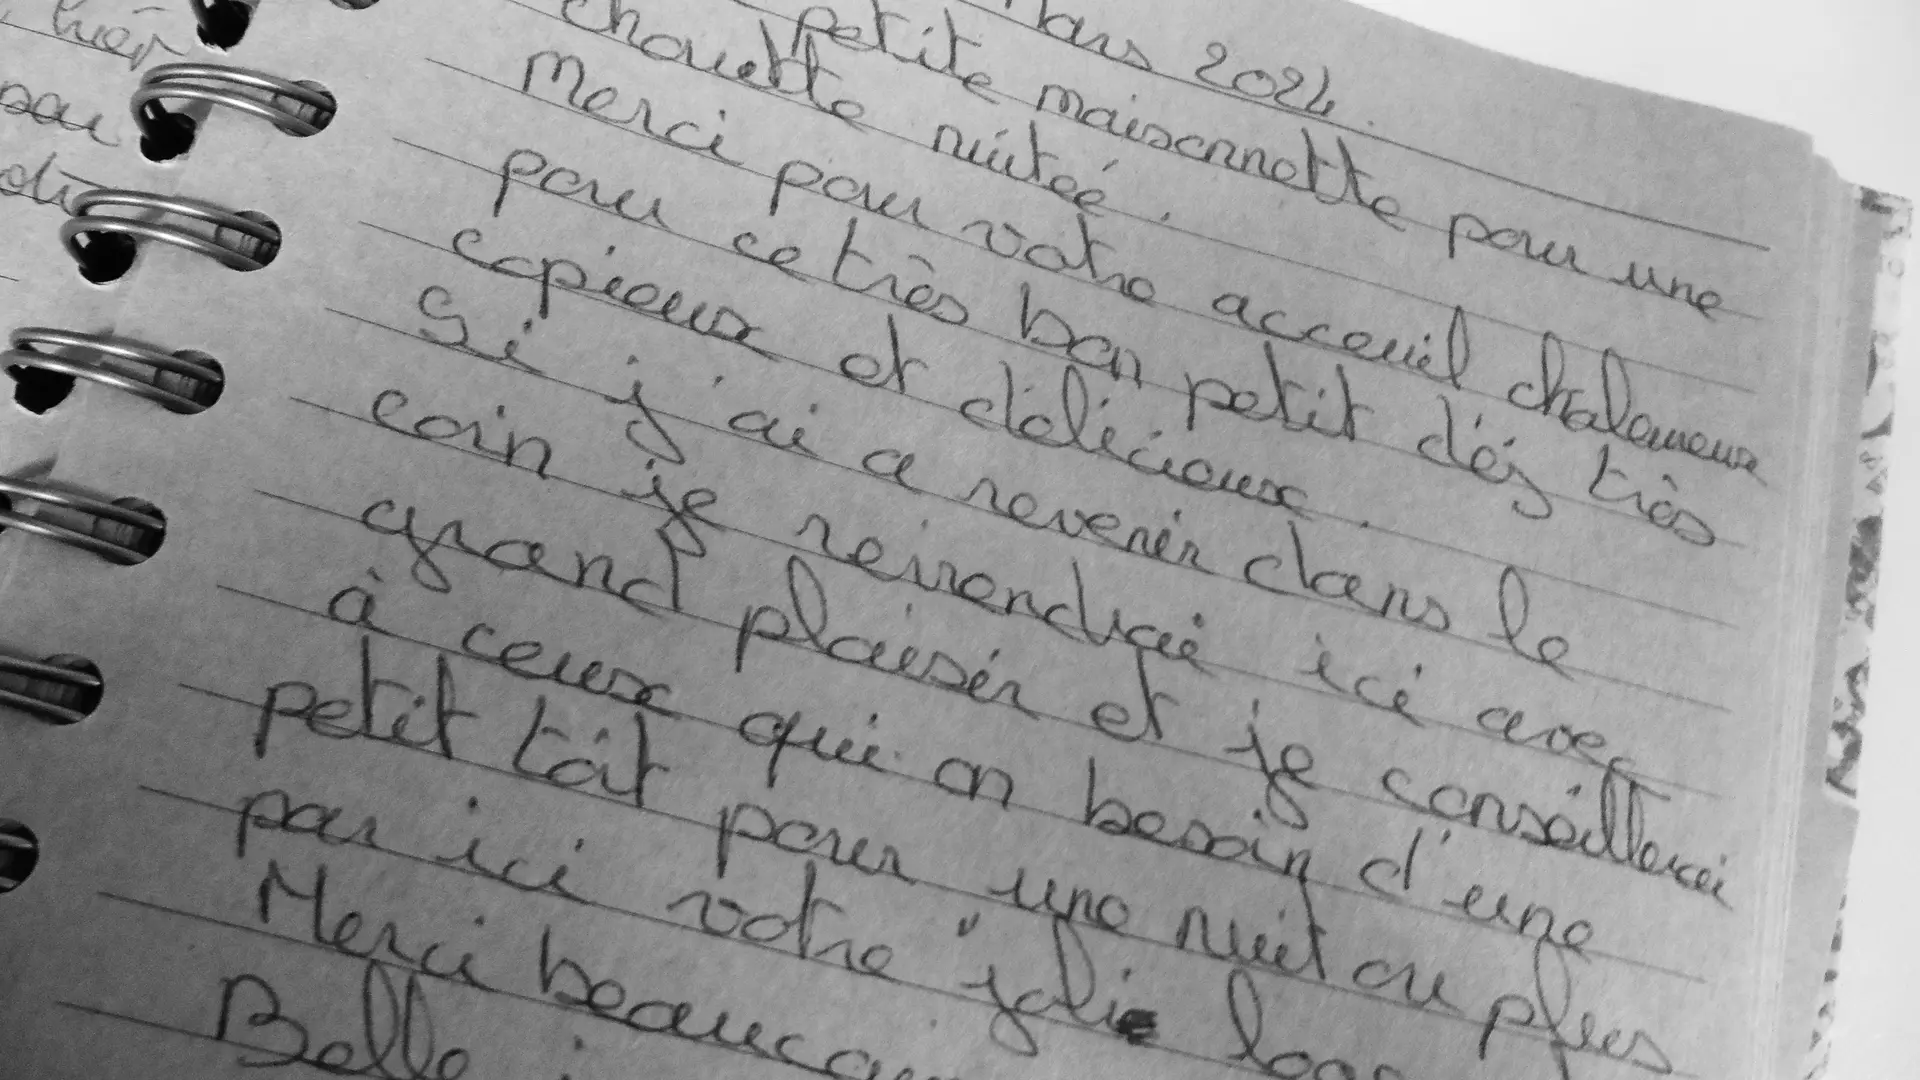 hier
Mars 2024.
petite maisonnette pour une
chouette nuitée.
Merci pour votre acceuil chaleureux
pour ce très bon petit déj très
copieux et délicieux.
Si j'ai a revenir dans le
coin je reviendrai ici avec
grand plaisir et je conseillerai
à ceux qui on besoin d'une
petit toit pour une nuit ou plus
par ici votre "jolie
Merci beaucou
Belle